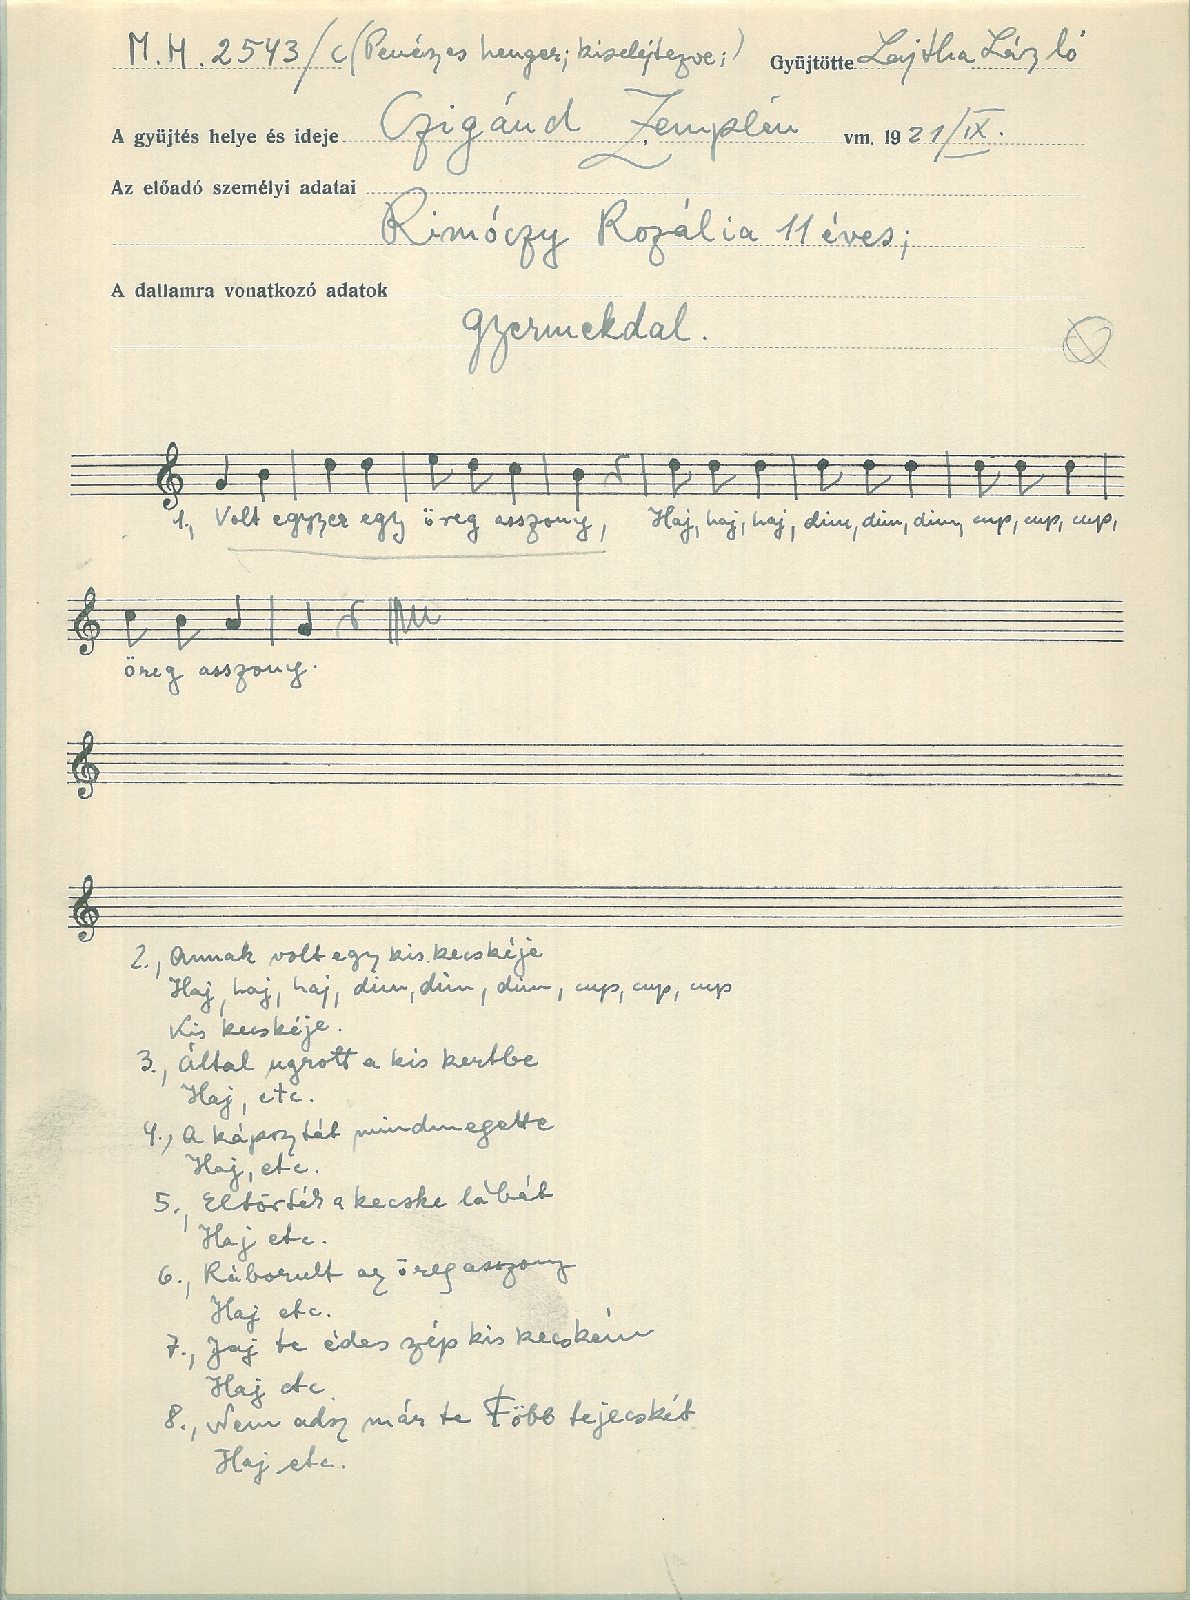 M.H. 2543/c (Penészes henger; kiselejtezve;) Gyűjtötte Lajtha László
A gyüjtés helye és ideje Czigánd, Zemplén vm. 1921/IX.
Az előadó személyi adatai
Rimóczy Rozália 11 éves;
A dallamra vonatkozó adatok
gyermekdal.
1., Volt egyzer egy öreg asszony, Haj, haj, haj, dim, dim, dim, cup, cup, cup,
öreg asszony.
2., Annak volt egy kis kecskéje
Haj, haj, haj, dim, dim, dim, cup, cup, cup
Kis kecskéje.
3., Által ugrott a kis kertbe
Haj, etc.
4., A káposztát mindmegette
Haj, etc.
5., Eltörték a kecske lábát
Haj etc.
6., Ráborult az öregasszony
Haj etc.
7., Jaj te édes szép kis kecském
Haj etc
8., Nem adsz már te több tejecskét
Haj etc.